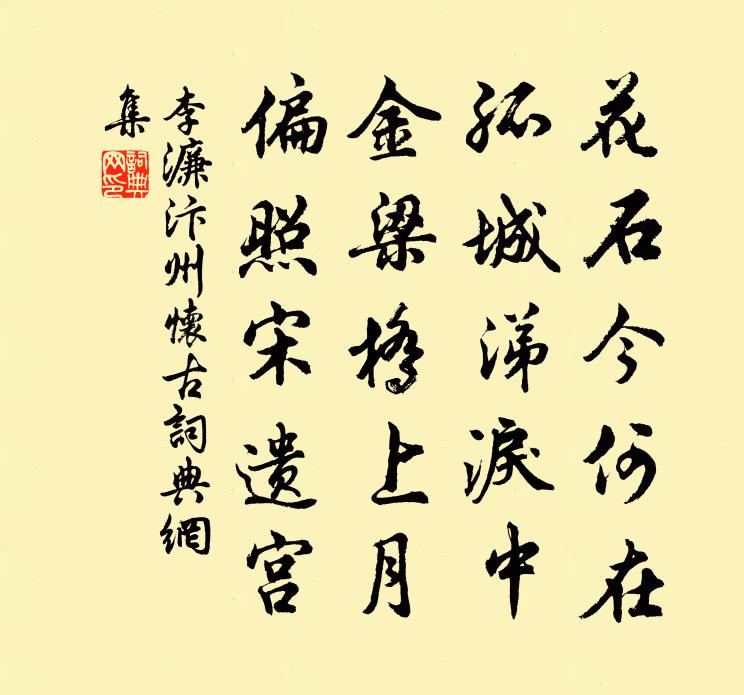 花石今何在
孤城涕淚中
金梁橋上月
偏照宋遗宫
李濂汴州懷古詞典網
集
詞典
网印